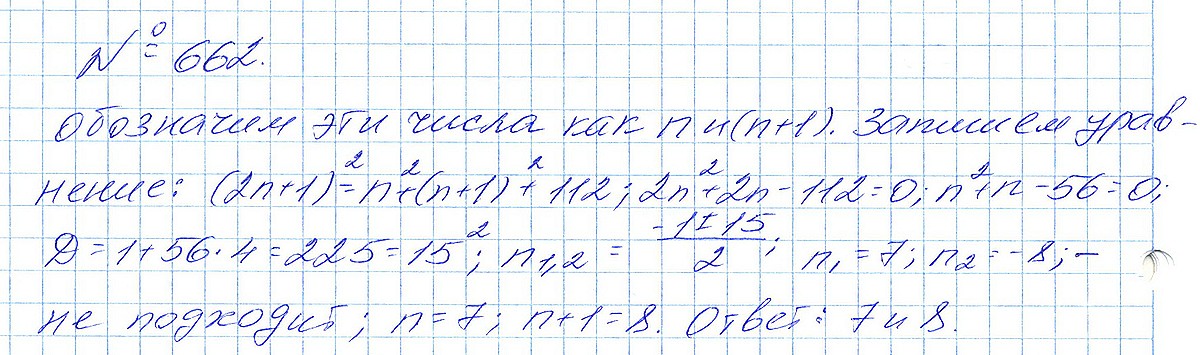 № 662.
Обозначим эти числа как n и (n+1). Запишем урав-
нение: (2n+1)²=n²+(n+1)²+112; 2n²+2n-112=0; n²+n-56=0;
D=1+56·4=225=15²; n₁,₂ = (-1±15)/2; n₁=7; n₂=-8; -
не подходит; n=7; n+1=8. Ответ: 7 и 8.